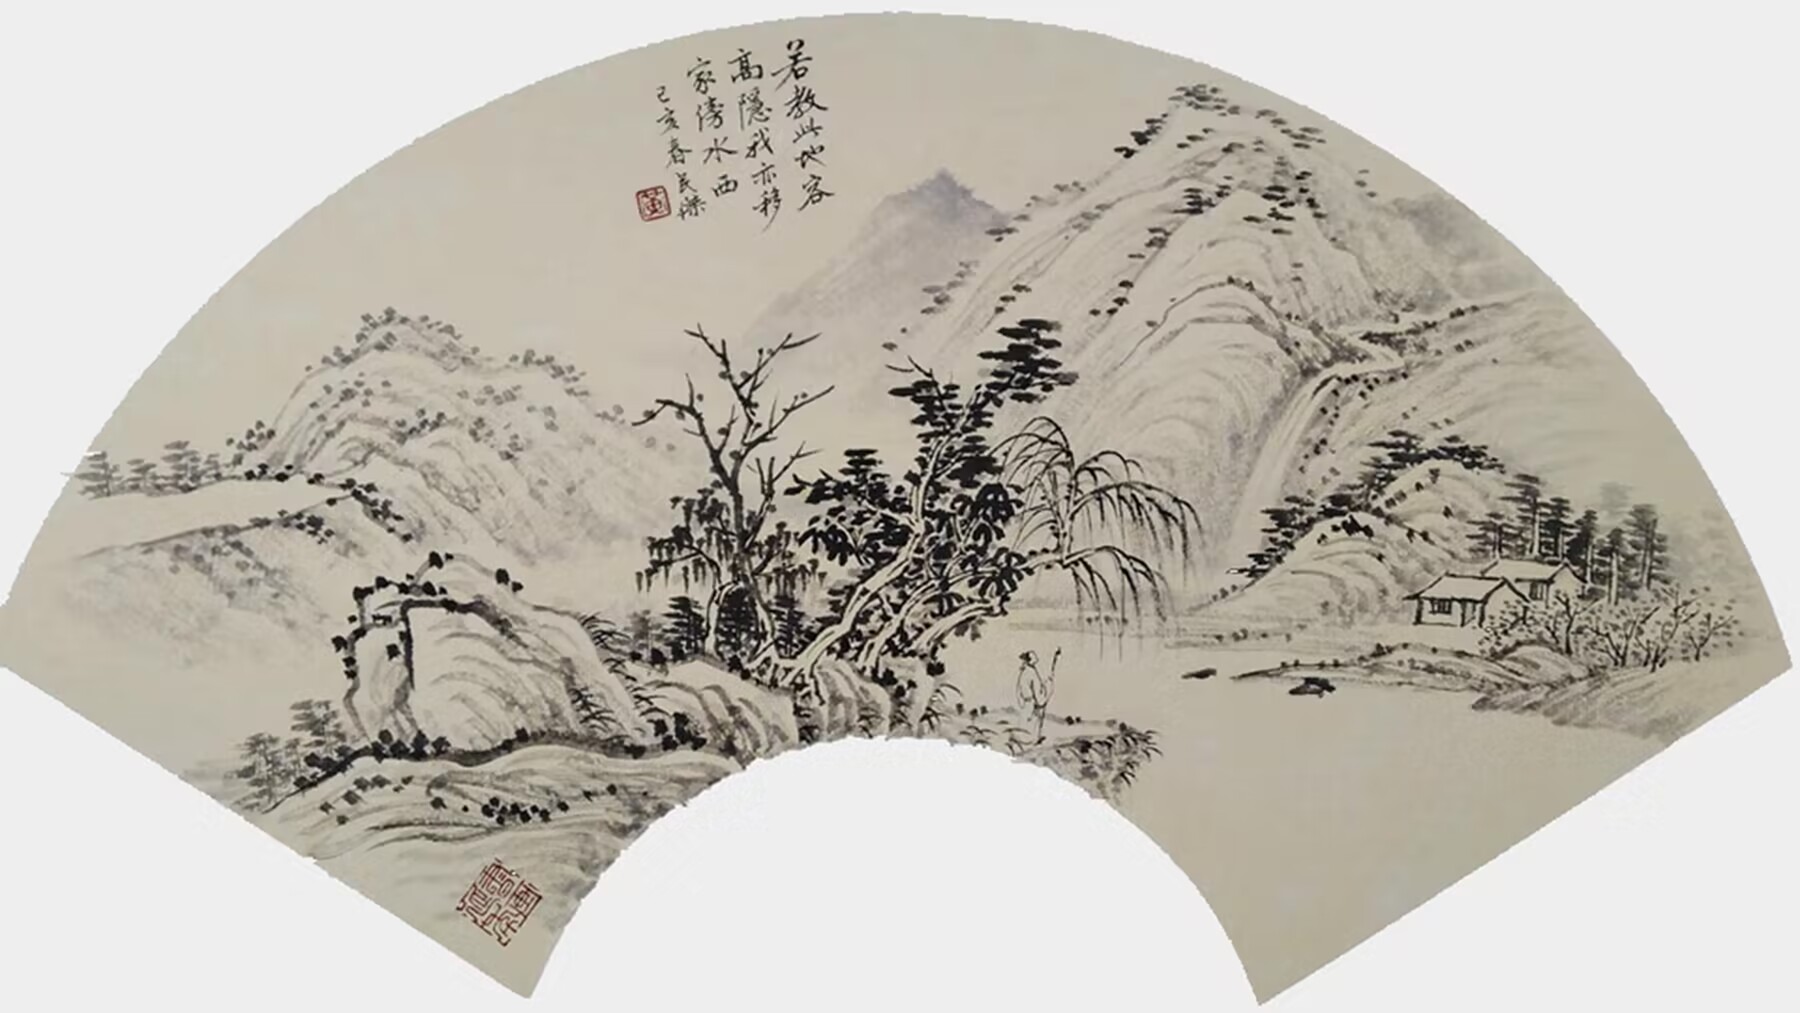 若教此地容
高隱我亦移
家傍水西
己亥春民傑